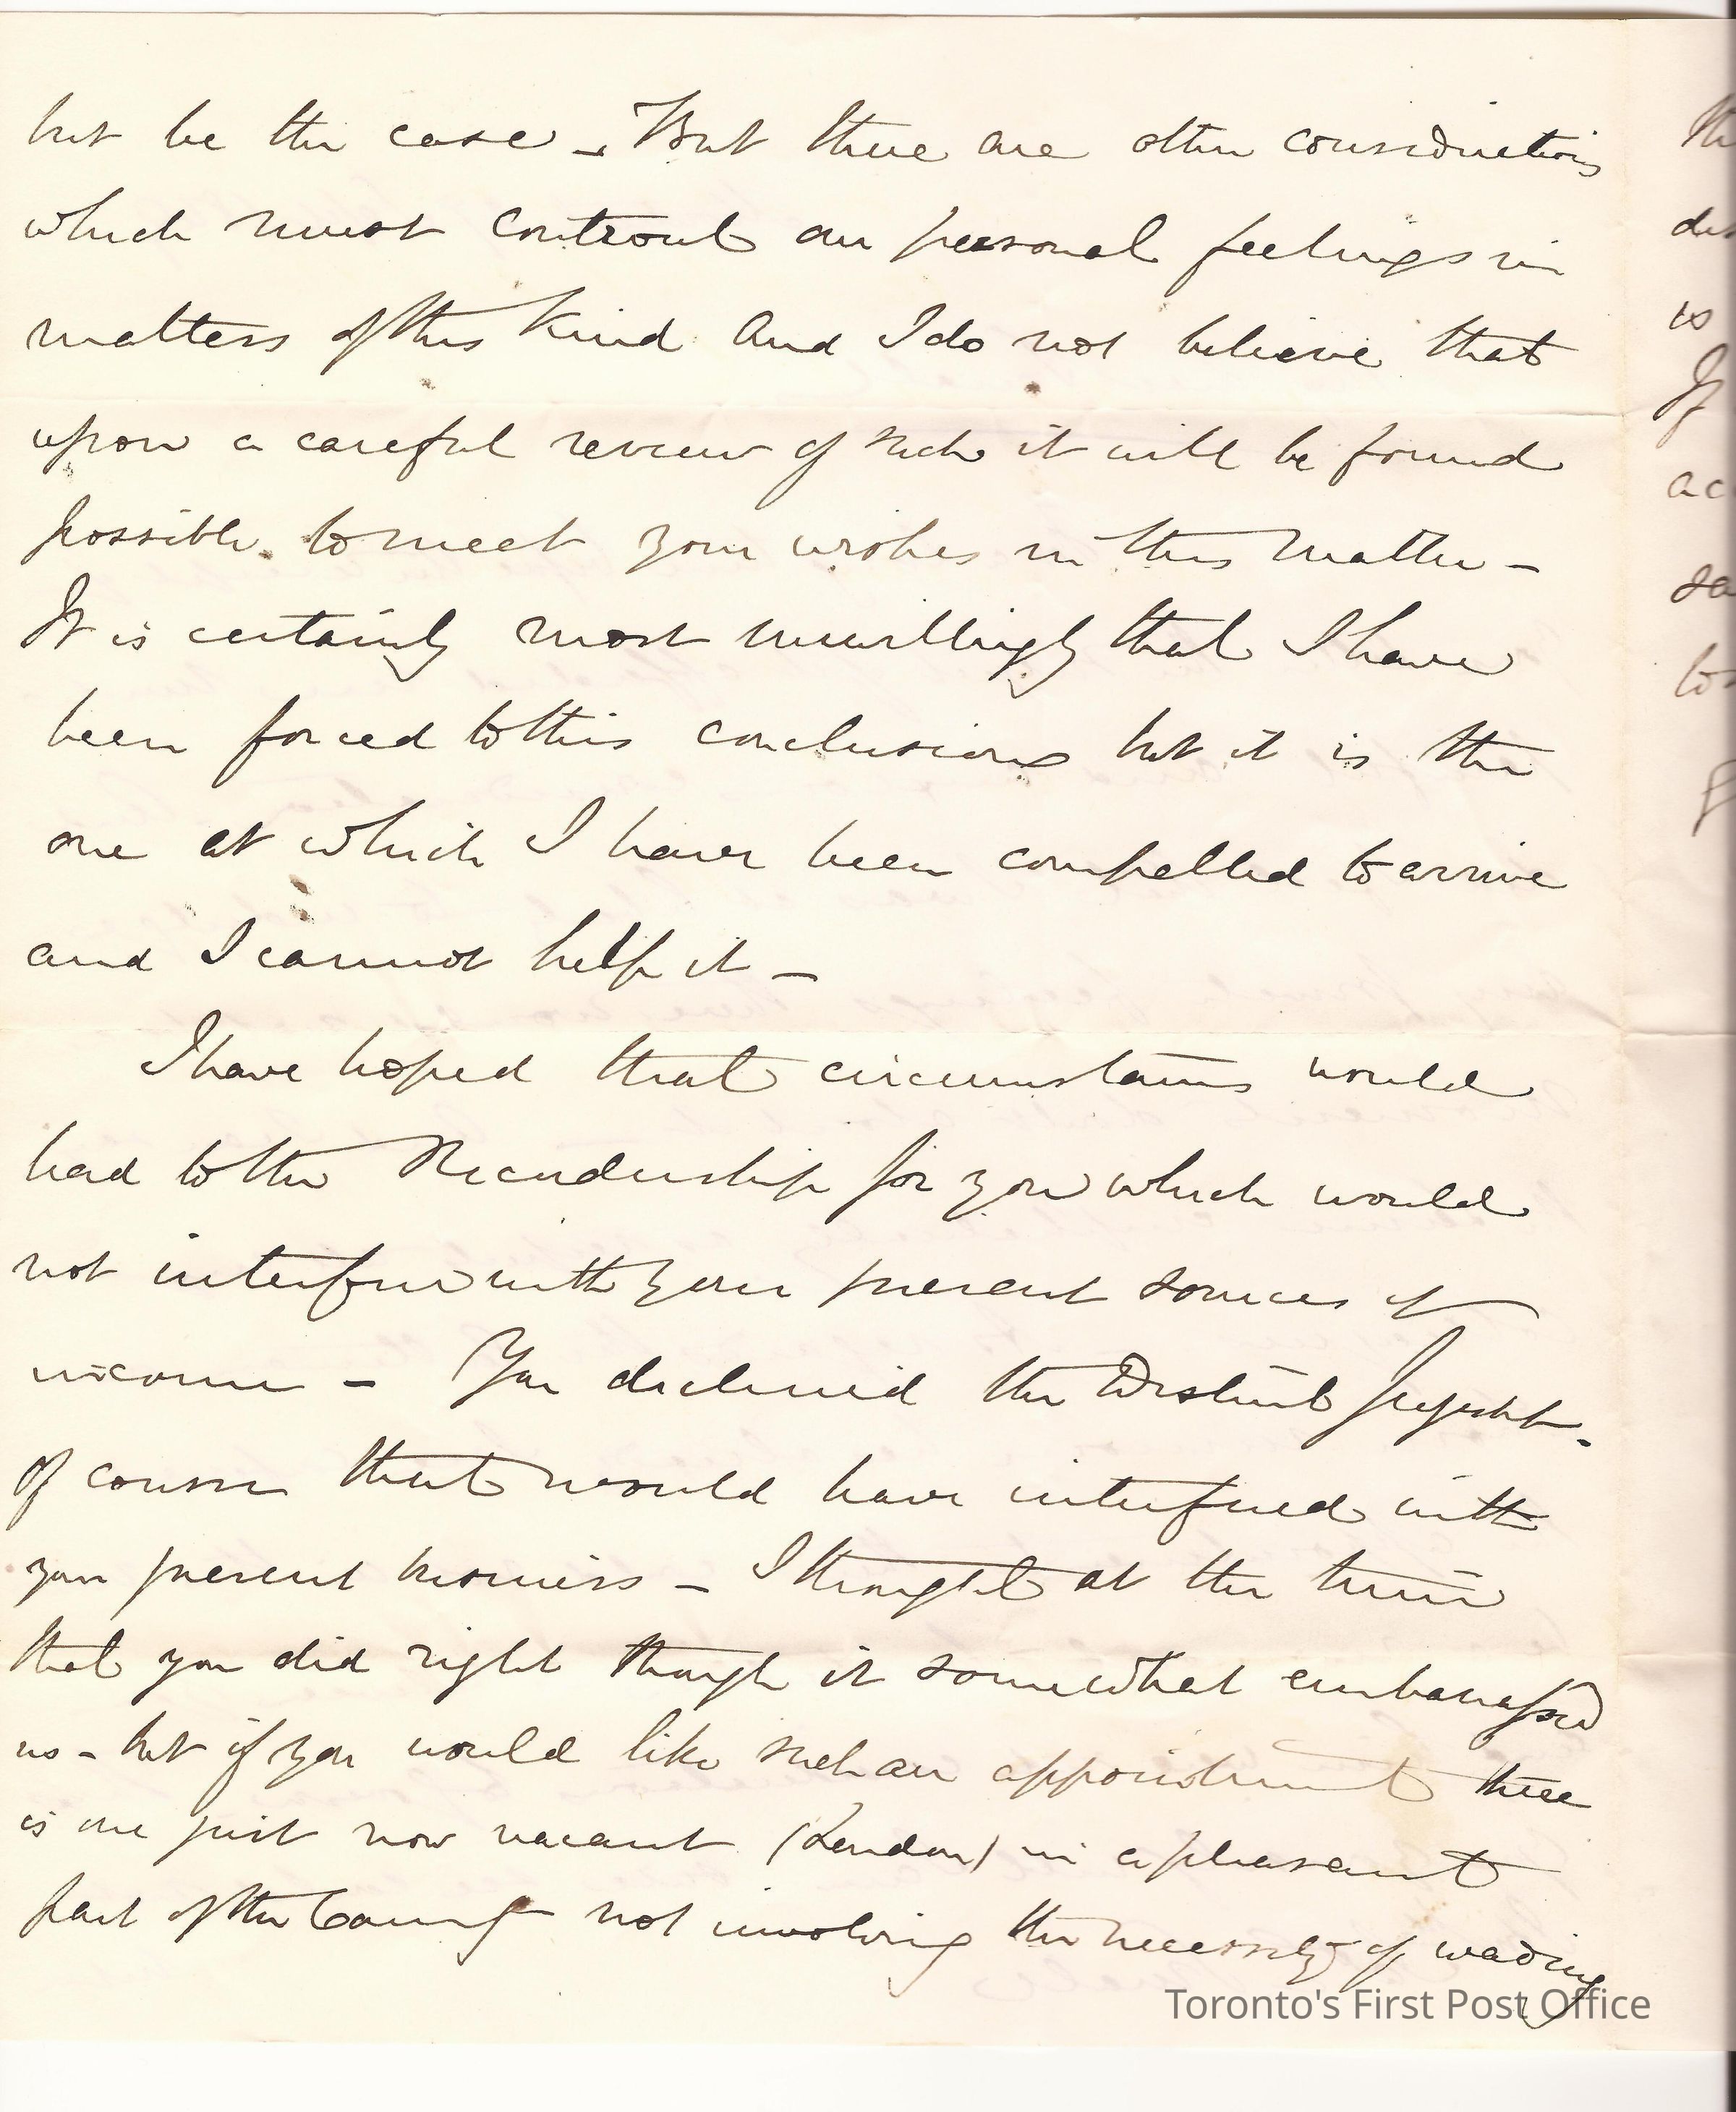 but be the case – But there are other considerations
which must controul our personal feelings in
matters of this kind and I do not believe that
upon a careful review of such it will be found
possible to meet your wishes in this matter –
It is certainly most unwillingly that I have
been forced to this conclusion but it is the
one at which I have been compelled to arrive
and I cannot help it –
I have hoped that circumstances would
lead to the Recordership for you which would
not interfere with your present sources of
income – You declined the District
of course that would have interfered with
your present business – I thought at the time
that you did right though it somewhat embarassed
us – but if you would like such an appointment there
is one just now vacant (London) in a pleasant
part of the County not involving the necessity of wading
Toronto's First Post Office